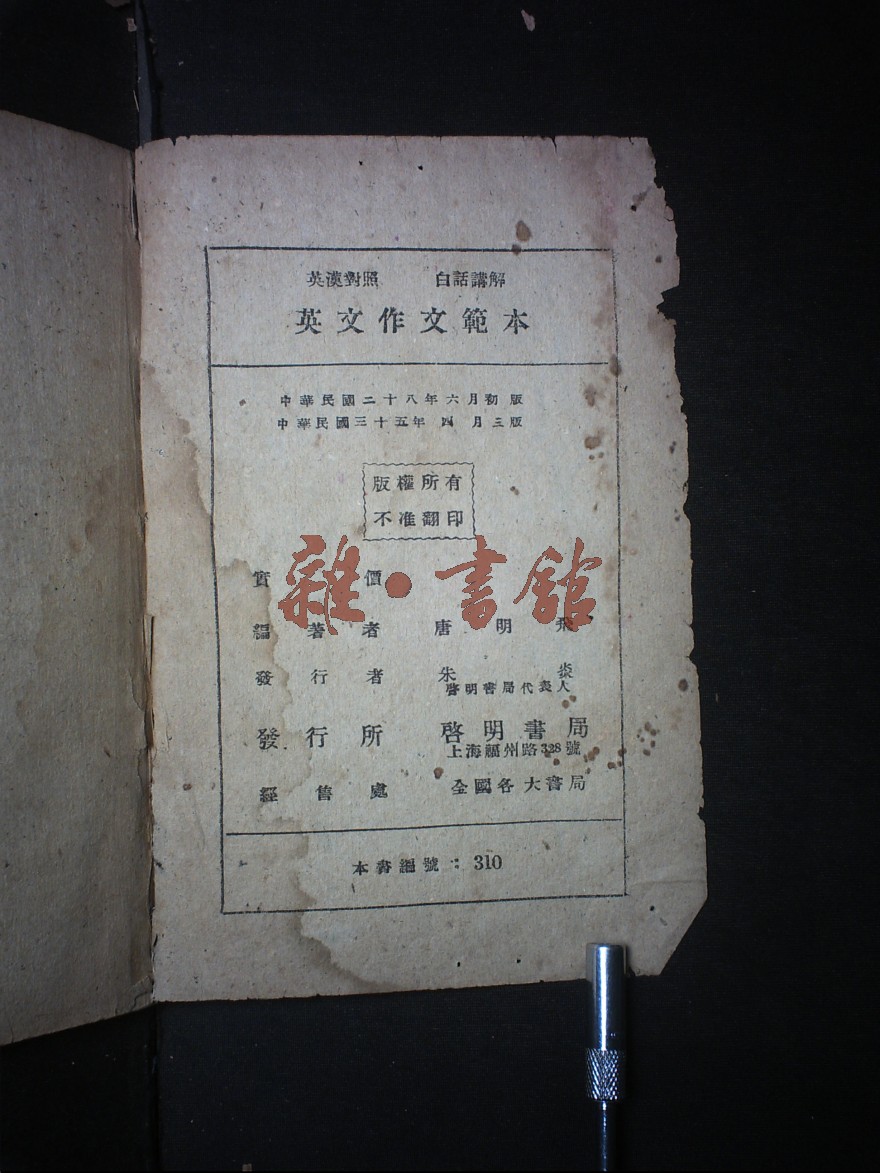 英漢對照 白話講解
英文作文範本
中華民國二十八年六月初版
中華民國三十五年四月三版
版權所有
不准翻印
雜·書館
實價
編著者 唐明飛
發行者 朱焱
啓明書局代表人
發行所 啓明書局
上海福州路328號
經售處 全國各大書局
本書編號：310